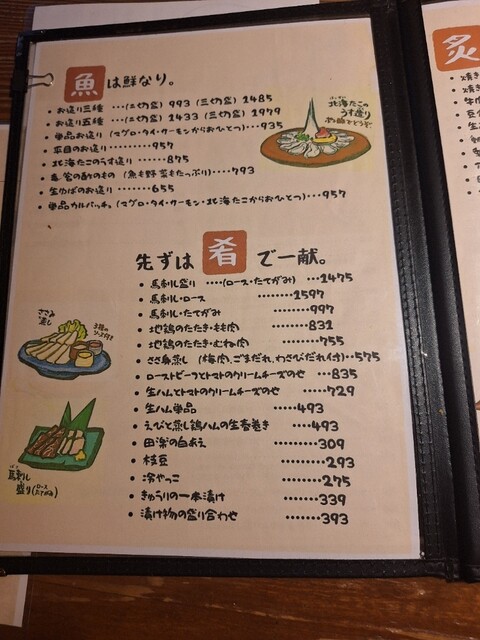 魚は鮮なり。
・お造り三種 …(二切盛) 993 (三切盛) 1485
・お造り五種 …(二切盛) 1433 (三切盛) 1979
・単品お造り (マグロ・タイ・サーモンからおひとつ)…935
・平目のお造り………957
・北海たこのうす造り ……875
・亀笹の酢のもの (魚も野菜もたっぷり)……793
・生ゆばのお造り ……655
・単品カルパッチョ (マグロ・タイ・サーモン・北海たこからおひとつ)…957
北海たこの
うす造り
ポン酢でどうぞ
先ずは肴で一献。
・馬刺し盛り …(ロース・たてがみ) …1475
・馬刺し・ロース ………1597
・馬刺し・たてがみ ………997
・地鶏のたたき・もも肉 ………831
・地鶏のたたき・むね肉 ………755
・ささ身蒸し (梅肉、ごまだれ、わさびだれ付)…575
・ローストビーフとトマトのクリームチーズのせ …835
・生ハムとトマトのクリームチーズのせ ……729
・生ハム単品 ……493
・えびと蒸し鶏ハムの生春巻き ……493
・田楽の白あえ ………309
・枝豆 ………293
・冷やっこ ………275
・きゅうりの一本漬け ………339
・漬け物の盛り合わせ ………393
ささみ
蒸し
馬刺し
盛り(ロース
たてがみ)
炙